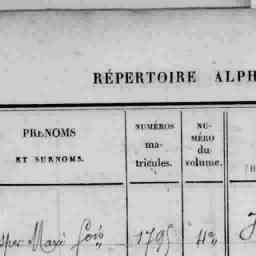 RÉPERTOIRE ALPH
PRENOMS
ET SURNOMS.
NUMÉROS
ma-
tricules.
NU-
MÉRO
du
volume.
1795